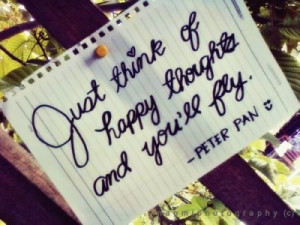 Just think of
happy thoughts
and you'll fly.
-PETER PAN